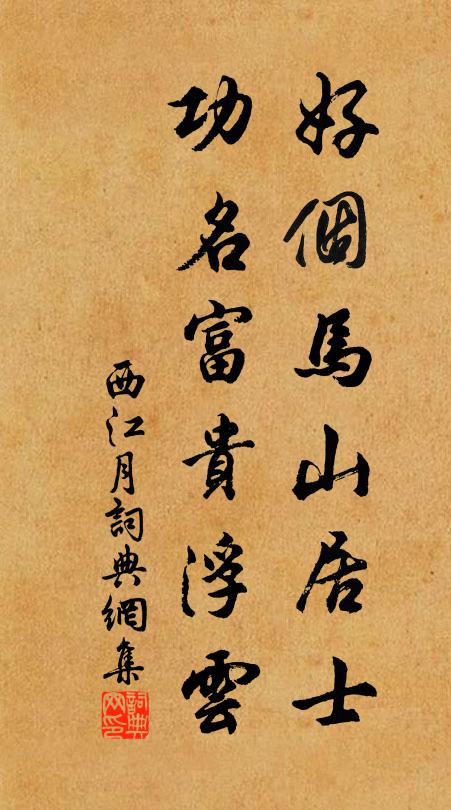 好個馬山居士
功名富貴浮雲
西江月詞典網集
詞典网印